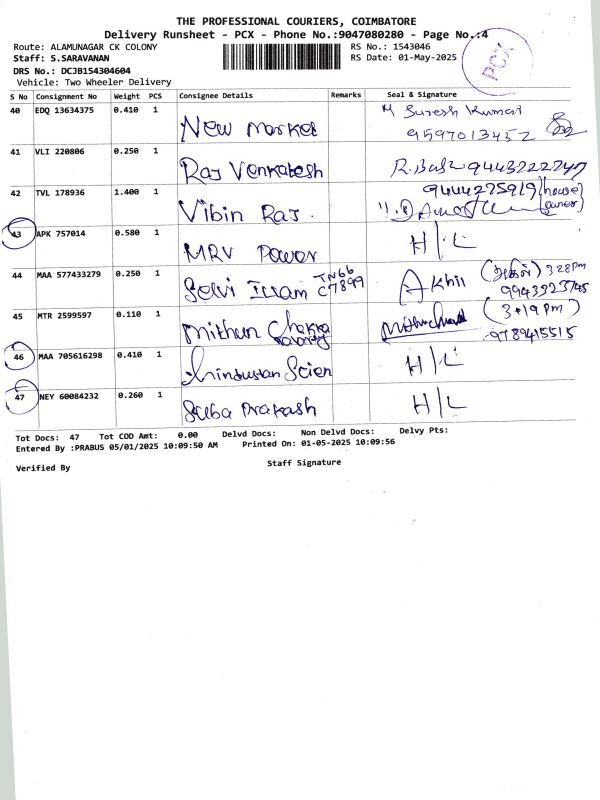 THE PROFESSIONAL COURIERS, COIMBATORE
Delivery Runsheet - PCX - Phone No.:9047080280 - Page No.:4
Route: ALAMUNAGAR CK COLONY
RS No.: 1543046
Staff: S.SARAVANAN
RS Date: 01-May-2025
PCX
DRS No.: DCJB154304604
Vehicle: Two Wheeler Delivery
S No Consignment No Weight PCS Consignee Details Remarks Seal & Signature
40 EDQ 13634375 0.410 1 New Market M Suresh Kumar
9597013452
41 VLI 220806 0.250 1 Raj Venkatesh R.Babu 9443222747
42 TVL 178936 1.400 1 Vibin Raj 9444275919 (house owner)
43 APK 757014 0.580 1 MRV Power H/L
44 MAA 577433279 0.250 1 Selvi Illam TN66 C7899 Akhil (அகில்) 3:28 pm
9943923745
45 MTR 2599597 0.110 1 Mithun Chakra (3:19 pm)
9789415515
46 MAA 705616298 0.410 1 Hindustan Scien H/L
47 NEY 60084232 0.260 1 Suba Prakash H/L
Tot Docs: 47 Tot COD Amt: 0.00 Delvd Docs: Non Delvd Docs: Delvy Pts:
Entered By :PRABUS 05/01/2025 10:09:50 AM Printed On: 01-05-2025 10:09:56
Verified By Staff Signature